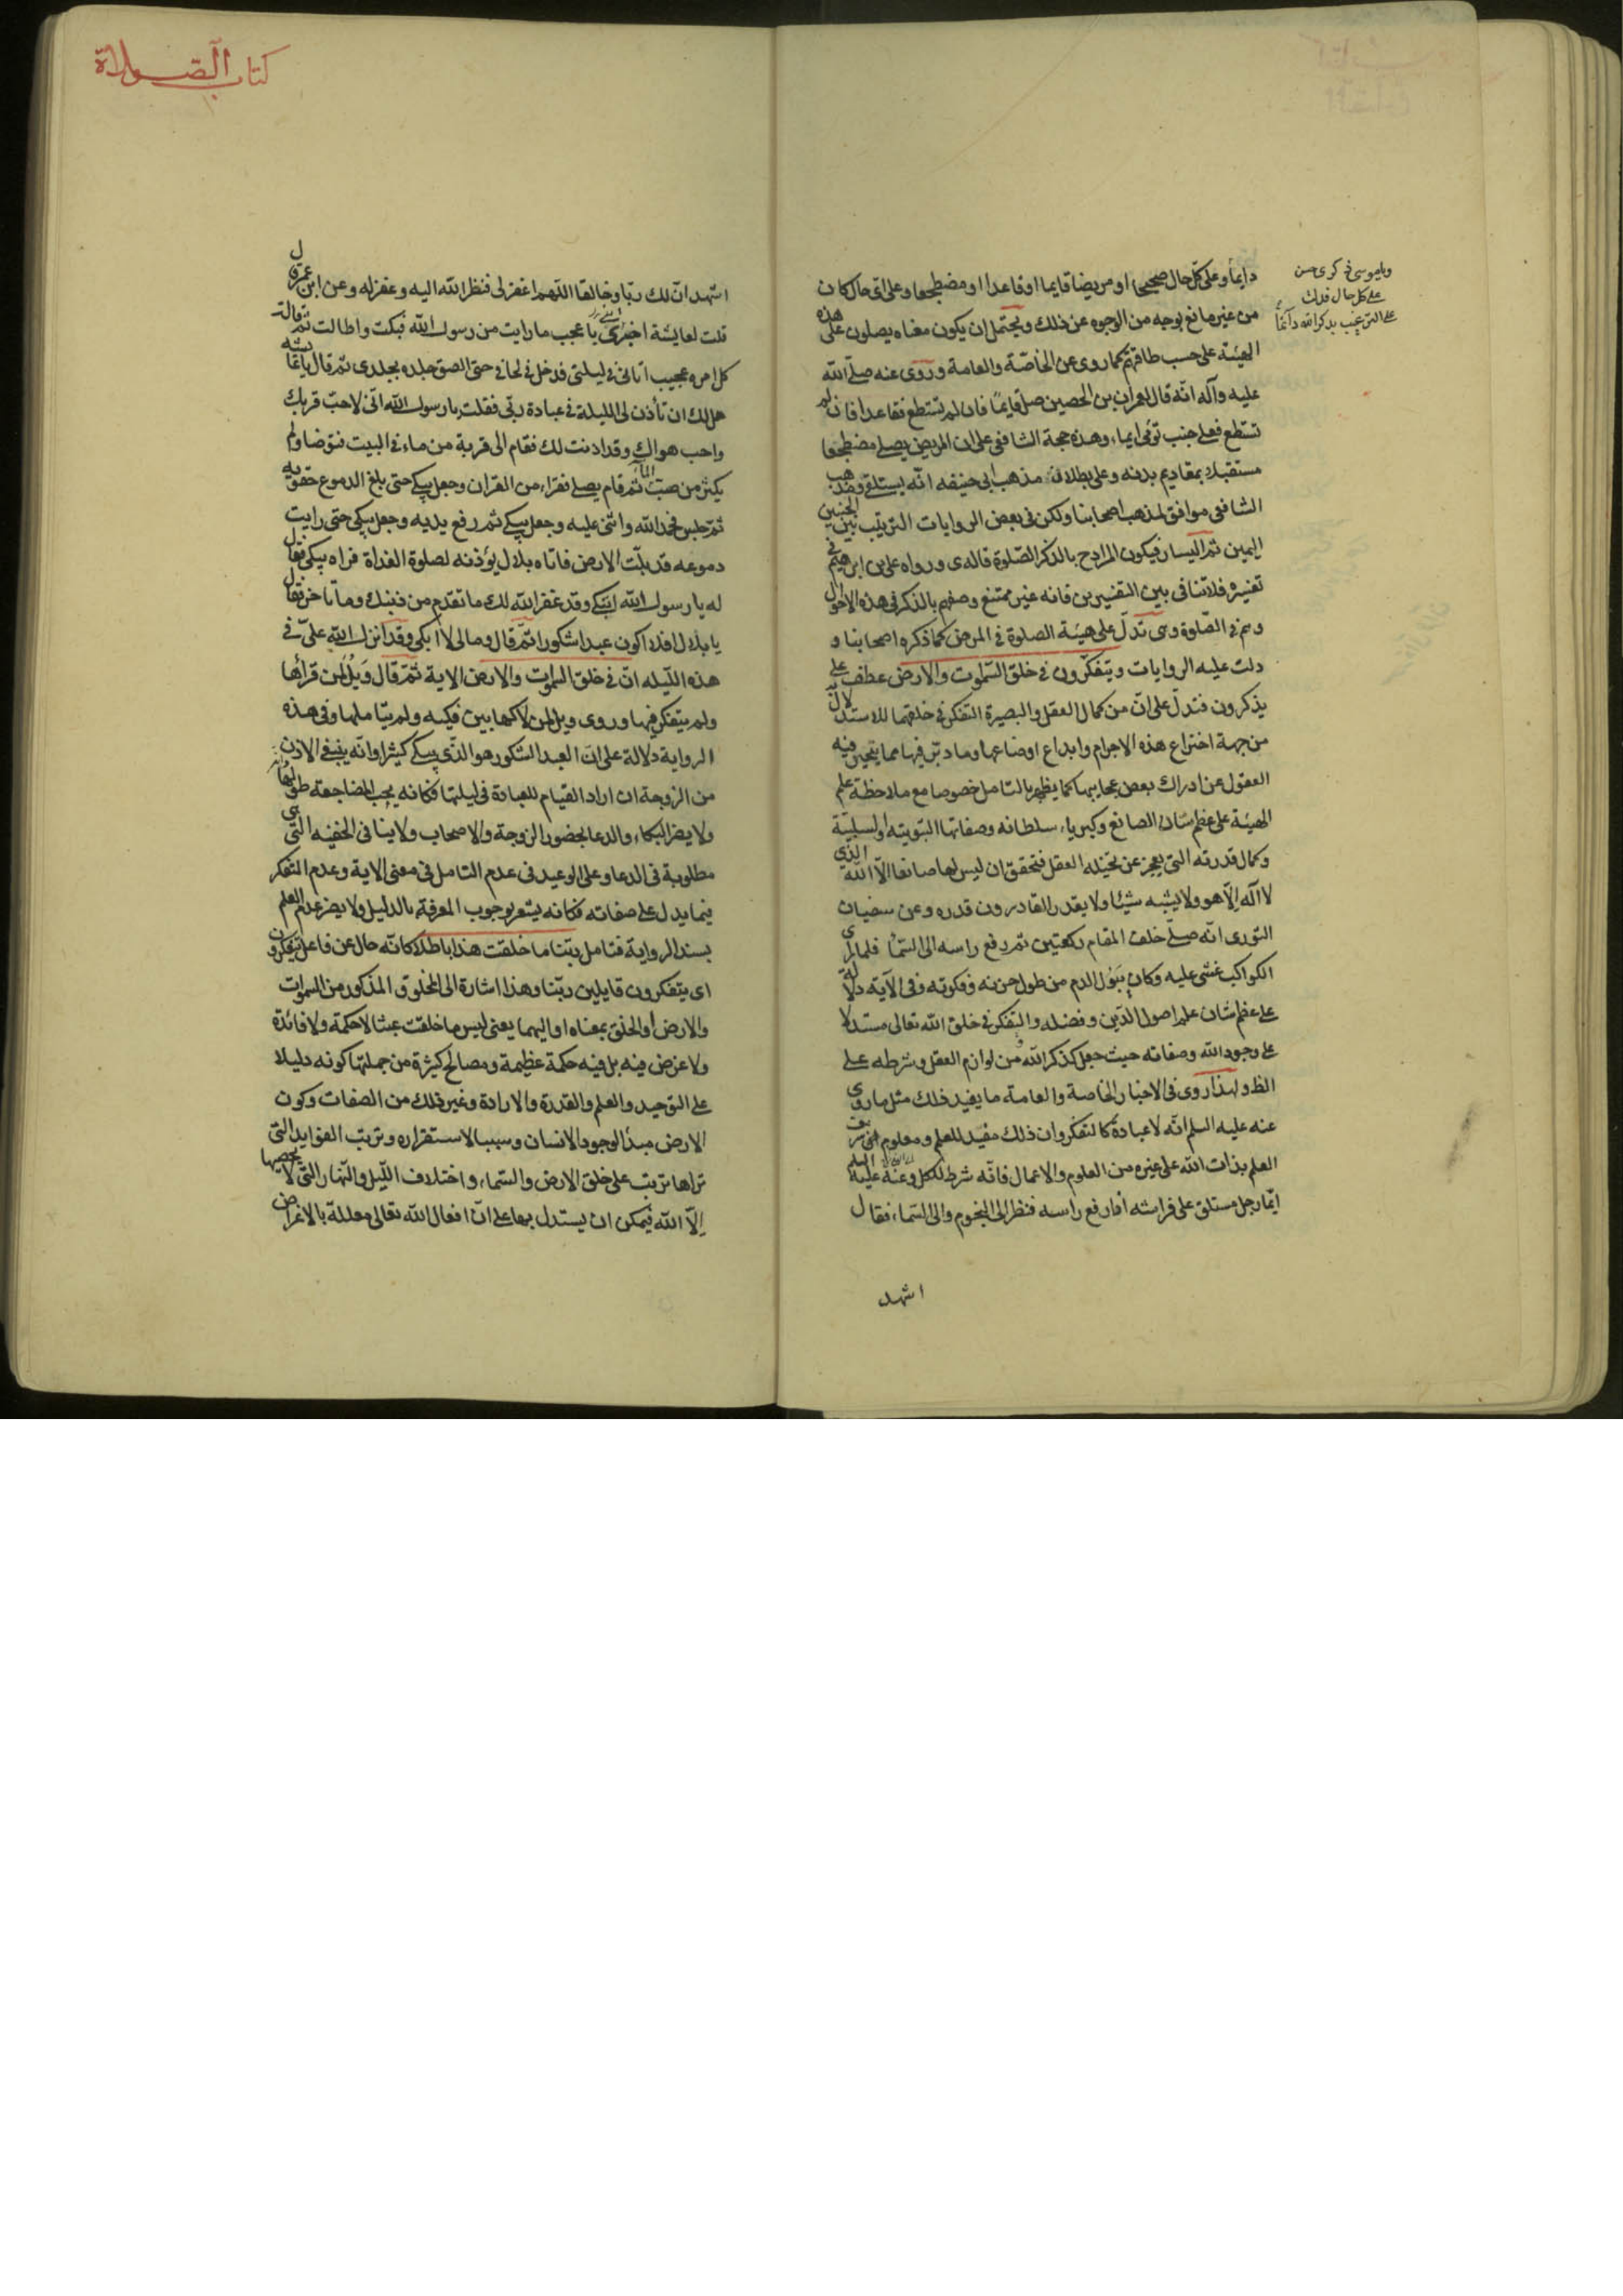 ويا موسى ذكرى حسن
على كل حال فدلت
على الترغيب بذكر الله دائماً
دايما وعلى كل حال صحيحا او مريضا قايما او قاعدا او مضطجعا وعلى اى حال كان
من غير مانع بوجه من الوجوه عن ذلك ويحتمل ان يكون معناه يصلون على هذه
الهيئة على حسب طاقتهم كما روى عن الخاصّة والعامة وروى عنه صلى الله
عليه وآله انّه قال لعمران بن الحصين صل قايمًا فان لم تستطع فقاعدا فان لم
تستطع فعلى جنب تومى ايماء وهذه حجة الشافعى على ان المريض يصلى مضطجعا
مستقبلا بمقاديم بدنه وعلى بطلان مذهب ابى حنيفه انّه يستلقى ومذهب
الشافعى موافق لمذهب اصحابنا ولكن فى بعض الروايات الترتيب بين الجنبين
اليمين ثم اليسار فيكون المراد ح بالذكر الصّلوة قاله ى ورواه على بن ابرهيم فى
تفسيره فلا تنافى بين التفسيرين فانه غير ممتنع وصفهم بالذكر فى هذه الاحوال
وهم فى الصّلوة وهى تدلّ على هيئة الصلوة فى المرض كما ذكره اصحابنا و
دلت عليه الروايات ويتفكّرون فى خلق السّموت والارض عطف على
يذكرون فتدلّ على انّ من كمال العقل والبصيرة التفكر فى خلقهما للاستدلال
من جهة اختراع هذه الاجرام وابداع اوضاعها وما دبّر فيها مما يتحير فيه
العقول عن ادراك بعض عجايبها كما يظهر بالتامل خصوصا مع ملاحظة علم
الهيئة على عظم شان الصانع وكبرياء سلطانه وصفاتها الثبوتيته والسلبيّة
وكمال قدرته التى يعجز عن تخيّله العقل فتحقق ان ليس لها صانعا الّا الله الذى
لا آله الّا هو ولا يشبه شيئا ولا يقدر القادرون قدره وعن سفيان
الثورى انّه صلّى خلف المقام ركعتين ثم رفع راسه الى السّماء فلما راى
الكواكب غشى عليه وكان يبول الدم من طول حزنه وفكرته وفى الآية دلالة
على عظم شان علم اصول الدّين وفضله والتفكر فى خلق الله تعالى مستدلا
على وجود الله وصفاته حيث جعل كذكر الله من لوازم العقل وشرطه على
الظ ولهذا روى فى الاخبار الخاصة والعامة ما يفيد ذلك مثل ما روى
عنه عليه السلم انّه لا عبادة كالتفكر وان ذلك مفيد للعلم ومعلوم شرف
العلم بذات الله على غيره من العلوم والاعمال فانّه شرط للكل وعنه عليه السلم
ايّما رجل مستلق على فراشه اذا رفع راسه فنظر الى النجوم والى السّماء فقال
اشهد
كتاب الصّلاة
اشهد انّ لك ربّا وخالقا اللهم اغفر لى فنظر الله اليه وغفر له وعن ابن عمر قال
قلت لعايشة اخبرينى با عجب ما رايت من رسول الله فبكت واطالت ثم قالت
كل امره عجيب اتانى فى ليلتى فدخل فى لحافى حتى الصق جلده بجلدى ثم قال يا عايشه
هل لك ان تأذن لى الليلة فى عبادة ربّى فقلت يا رسول الله انّى لاحبّ قربك
واحب هواك وقد اذنت لك فقام الى قربة من ماء فى البيت فتوضا ولم
يكثر من صبّ الماء ثم قام يصلى فقراء من القران وجعل يبكى حتى بلغ الدموع حقويه
ثم جلس فحمد الله واثنى عليه وجعل يبكى ثم رفع يديه وجعل يبكى حتى رايت
دموعه قد بلّت الارض فاتاه بلال يؤذنه لصلوة الغداة فراه يبكى فقال
له يا رسول الله اتبكى وقد غفر الله لك ما تقدم من ذنبك وما تاخر فقال
يا بلال افلا اكون عبدا شكورا ثمّ قال ومالى لا ابكى وقد انزل الله علىّ فى
هذه اللّيله انّ فى خلق السموت والارض الاية ثمّ قال وَيلٌ لمن قرأها
ولم يتفكر فيها وروى ويل لمن لاكها بين فكيه ولم يتاملها وفى هذه
الرواية دلالة على ان العبد الشكور هو الذّى يبكى كثيرا وانّه ينبغى الاذن
من الزوجة ان اراد القيام للعبادة فى ليلتها فكانه يجب المضاجعة طولها
ولا يضر البكاء والدعا بحضور الزوجة والاصحاب ولا ينافى الخفيه التى هى
مطلوبة فى الدعا وعلى الوعيد فى عدم التامل فى معنى الاية وعدم التفكر
فيما يدل على صفاته فكانه يشعر بوجوب المعرفة بالدليل ولا يضر عدم العلم
بسند الرواية فتامل ربّنا ما خلقت هذا باطلا كانّه حال عن فاعل يتفكرون
اى يتفكرون قايلين ربّنا وهذا اشارة الى المخلوق المذكور من السموات
والارض او الخلق بمعناه او اليهما يعنى ليس ما خلقت عبثا لا حكمة ولا فائدة
ولا غرض فيه بل فيه حكمة عظيمة ومصالح كثيرة من جملتها كونه دليلا
على التوحيد والعلم والقدرة والارادة وغير ذلك من الصفات وكون
الارض مبدأ لوجود الانسان وسببا لاستقراره وترتب الفوايد التى
تراها ترتب على خلق الارض والسّماء واختلاف اللّيل والنّهار التى لا يحصيها
الّا الله فيمكن ان يستدل بها على انّ افعال الله تعالى معللة بالاغراض